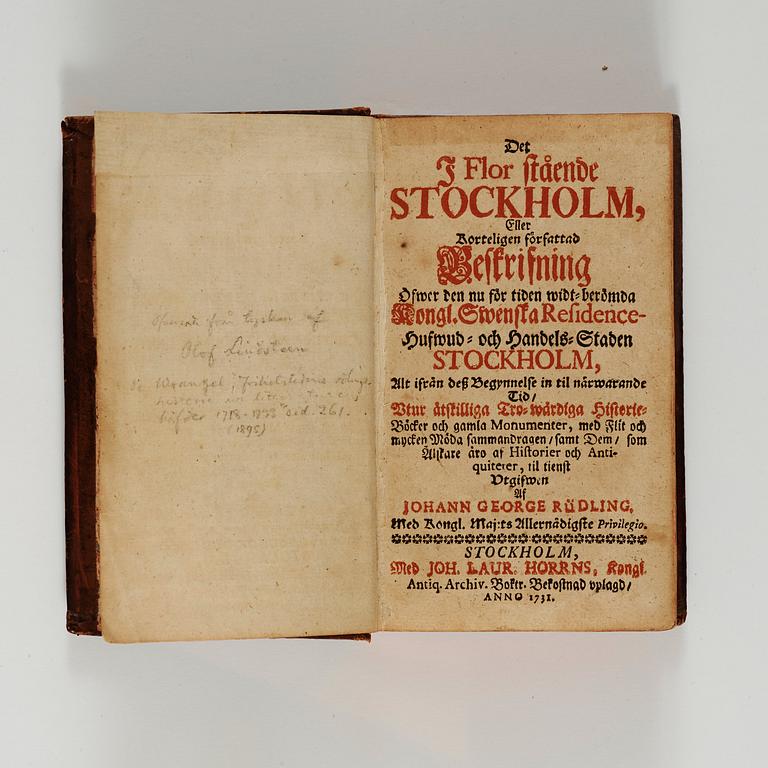 från tyskan af
Olof Lindsteen
Se Wrangel, Frihetstidens odlings-
historia
häfder 1718-1733 sid. 261.
(1895)
Det
I Flor stående
STOCKHOLM,
Eller
Korteligen författad
Beskrifning
Öfwer den nu för tiden widt-berömda
Kongl. Swenska Residence-
Hufwud- och Handels-Staden
STOCKHOLM,
Alt ifrån deß Begynnelse in til närwarande
Tid/
Utur åtskilliga Tro-wärdiga Historie-
Böcker och gamla Monumenter, med Flit och
mycken Möda sammandragen/ samt Dem/ som
Älskare äro af Historier och Anti-
quiteter, til tienst
Utgifwen
Af
JOHANN GEORGE RÜDLING,
Med Kongl. Maj:ts Allernådigste Privilegio.
STOCKHOLM,
Med JOH. LAUR. HORRNS, Kongl.
Antiq. Archiv. Boktr. Bekostnad uplagd/
ANNO 1731.